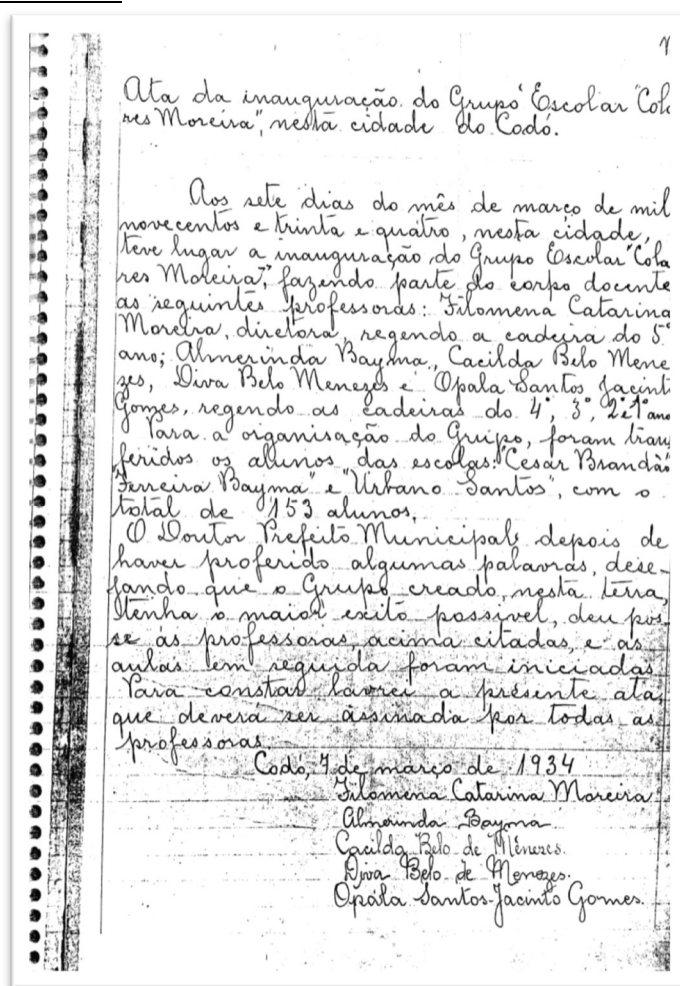 1
Ata da inauguração do Grupo Escolar "Cola
res Moreira", nesta cidade do Codó.
Aos sete dias do mês de março de mil
novecentos e trinta e quatro, nesta cidade,
teve lugar a inauguração do Grupo Escolar "Cola
res Moreira", fazendo parte do corpo docente
as seguintes professoras: Filomena Catarina
Moreira, diretora, regendo a cadeira do 5º
ano; Almerinda Bayma, Cacilda Belo Mene
zes, Diva Belo Menezes e Opala Santos Jacint
Gomes, regendo as cadeiras do 4º, 3º, 2º e 1º ano
Para a organisação do Grupo, foram tran
feridos os alunos das escolas: "Cesar Brandão"
"Ferreira Bayma" e "Urbano Santos", com o
total de 153 alunos.
O Doutor Prefeito Municipal, depois de
haver proferido algumas palavras, dese-
jando que o Grupo creado, nesta terra,
tenha o maior exito possivel, deu pos
se às professoras acima citadas, e as
aulas em seguida foram iniciadas.
Para constar lavrei a presente ata,
que deverá ser assinada por todas as
professoras.
Codó, 7 de março de 1934
Filomena Catarina Moreira
Almerinda Bayma
Cacilda Belo de Menezes.
Diva Belo de Menezes.
Opála Santos Jacinto Gomes.